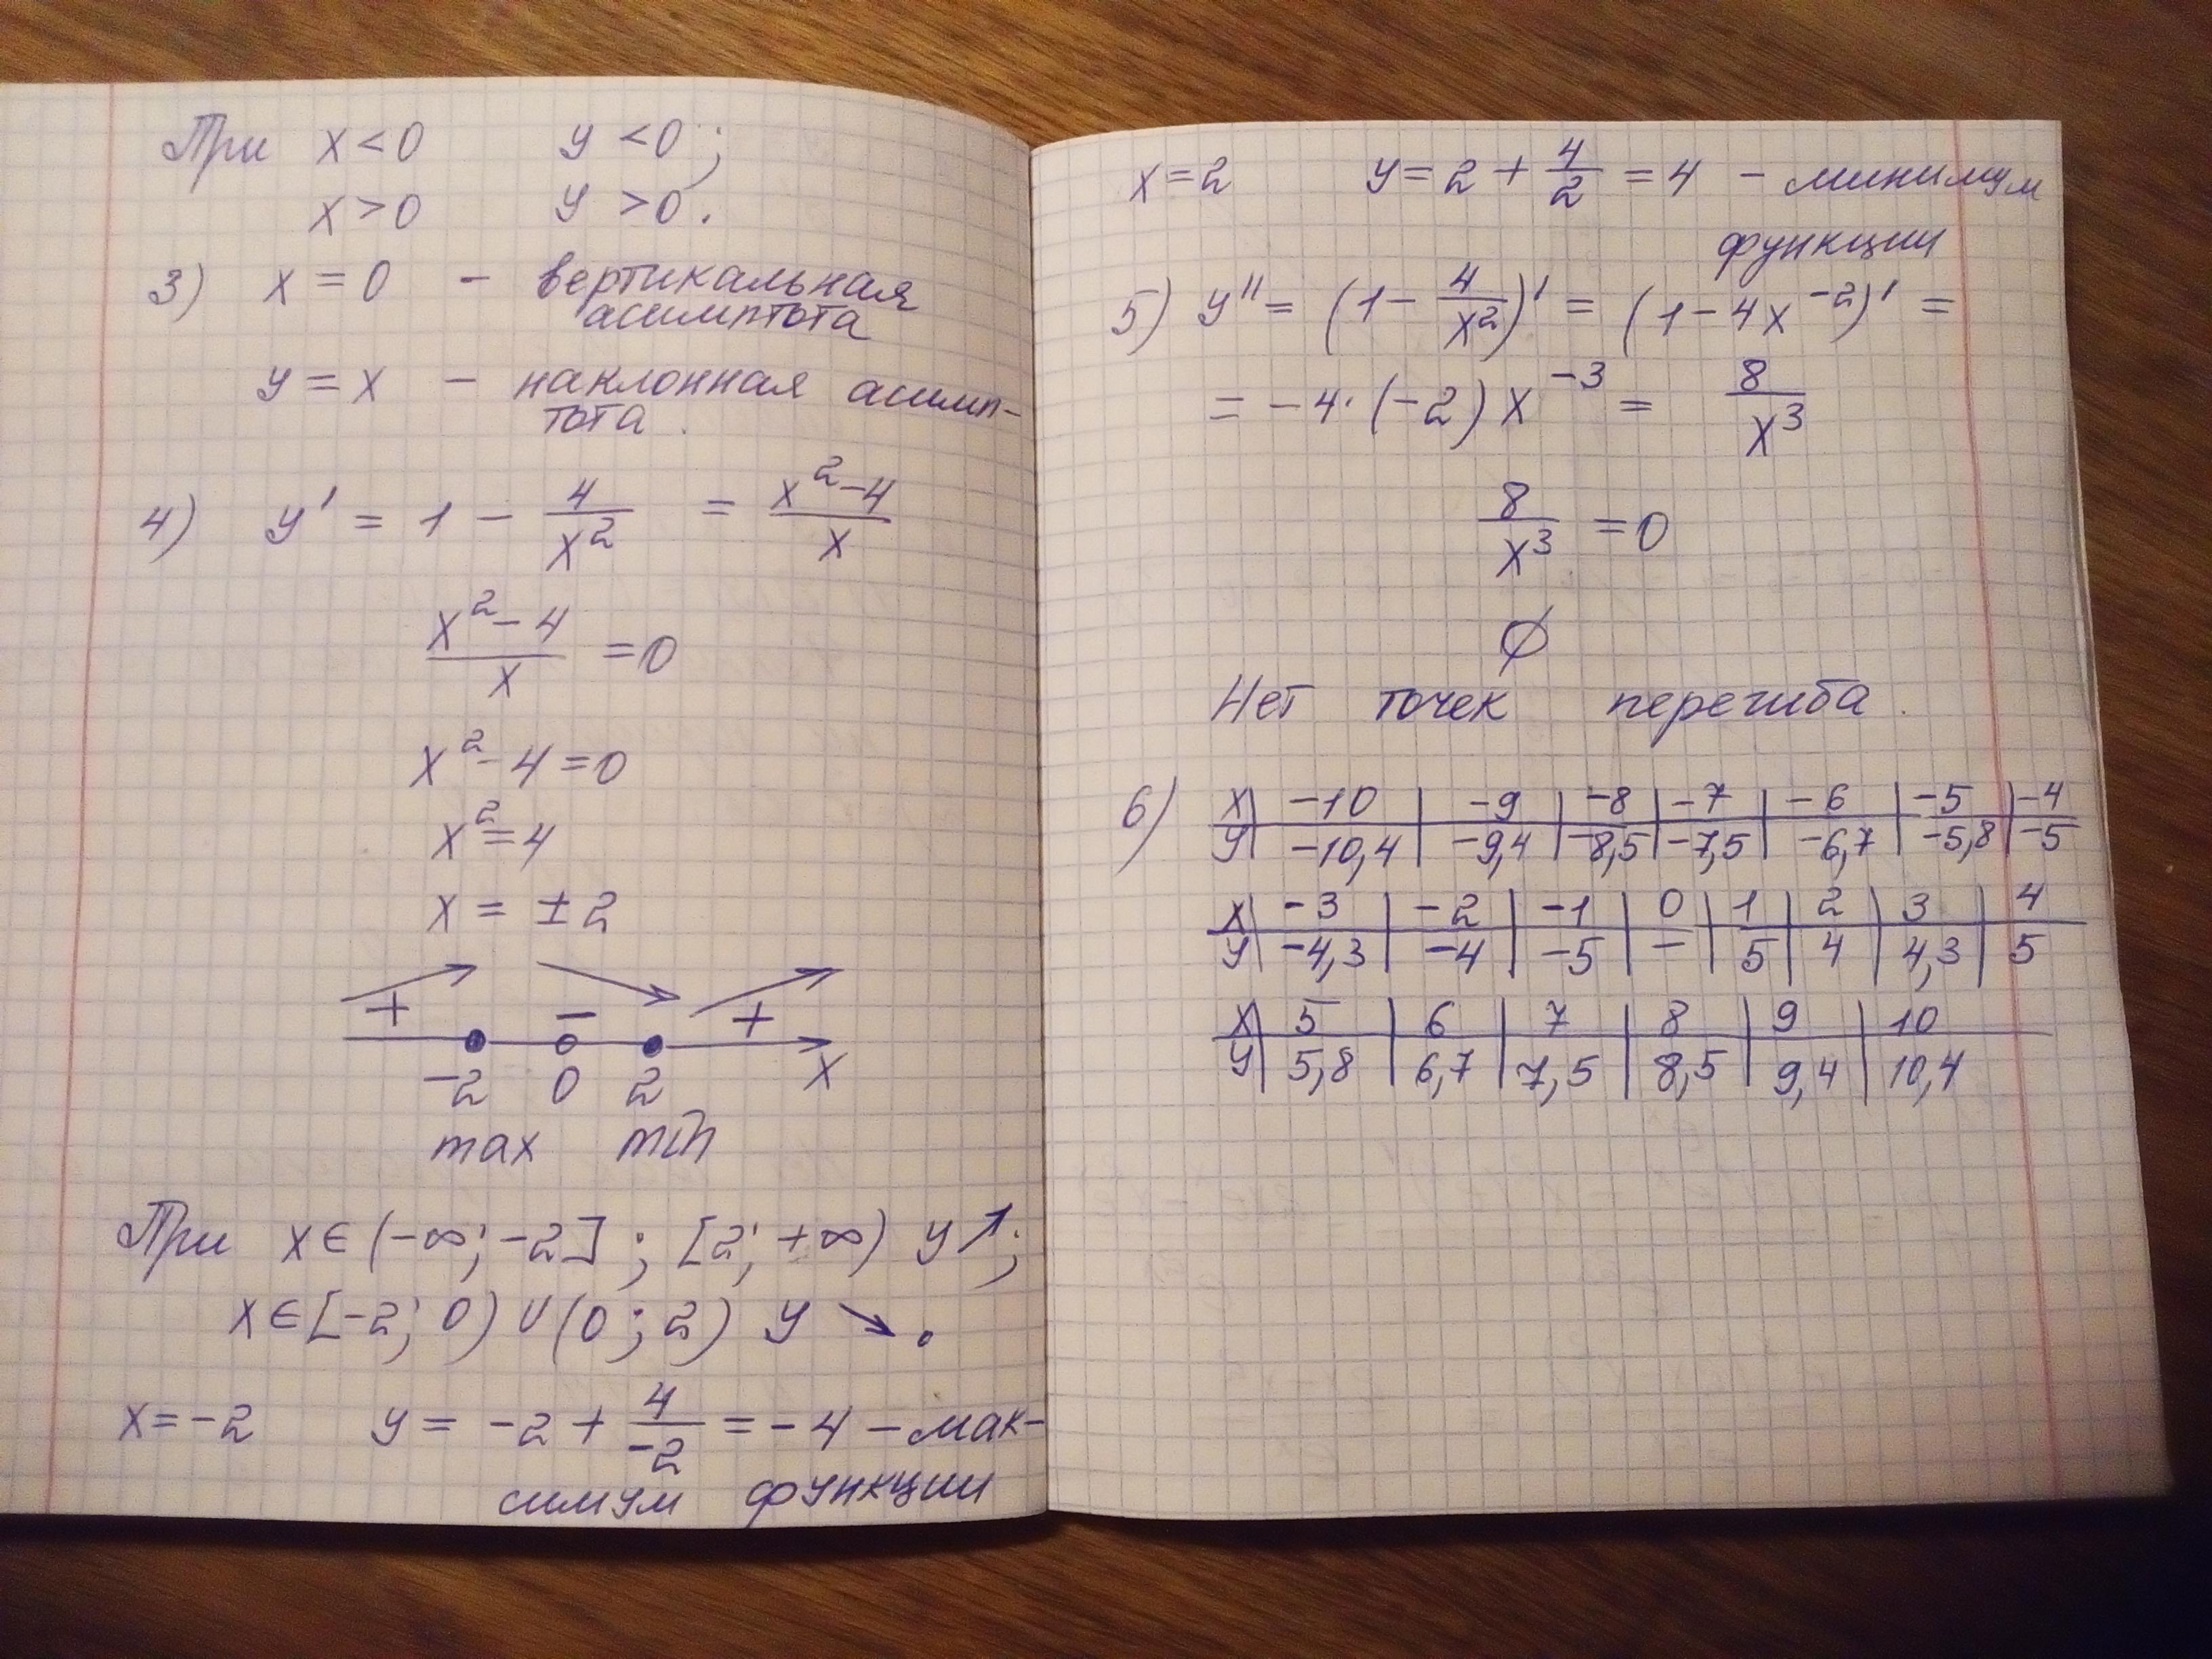 При x < 0 y < 0;
x > 0 y > 0.
3) x = 0 – вертикальная
асимптота
y = x – наклонная асимп-
тота.
4) y' = 1 - 4/x² = (x²-4)/x
(x²-4)/x = 0
x² - 4 = 0
x² = 4
x = ±2
+ – +
-2 0 2 x
max min
При x ∈ (-∞; -2] ; [2; +∞) y ↗;
x ∈ [-2; 0) ∪ (0; 2) y ↘.
x = -2 y = -2 + 4/-2 = -4 – мак-
симум функции
x = 2 y = 2 + 4/2 = 4 – минимум
функции
5) y'' = (1 - 4/x²)' = (1 - 4x⁻²)' =
= -4·(-2)x⁻³ = 8/x³
8/x³ = 0
∅
Нет точек перегиба.
6) x | -10 | -9 | -8 | -7 | -6 | -5 | -4
y | -10,4 | -9,4 | -8,5 | -7,5 | -6,7 | -5,8 | -5
x | -3 | -2 | -1 | 0 | 1 | 2 | 3 | 4
y | -4,3 | -4 | -5 | – | 5 | 4 | 4,3 | 5
x | 5 | 6 | 7 | 8 | 9 | 10
y | 5,8 | 6,7 | 7,5 | 8,5 | 9,4 | 10,4